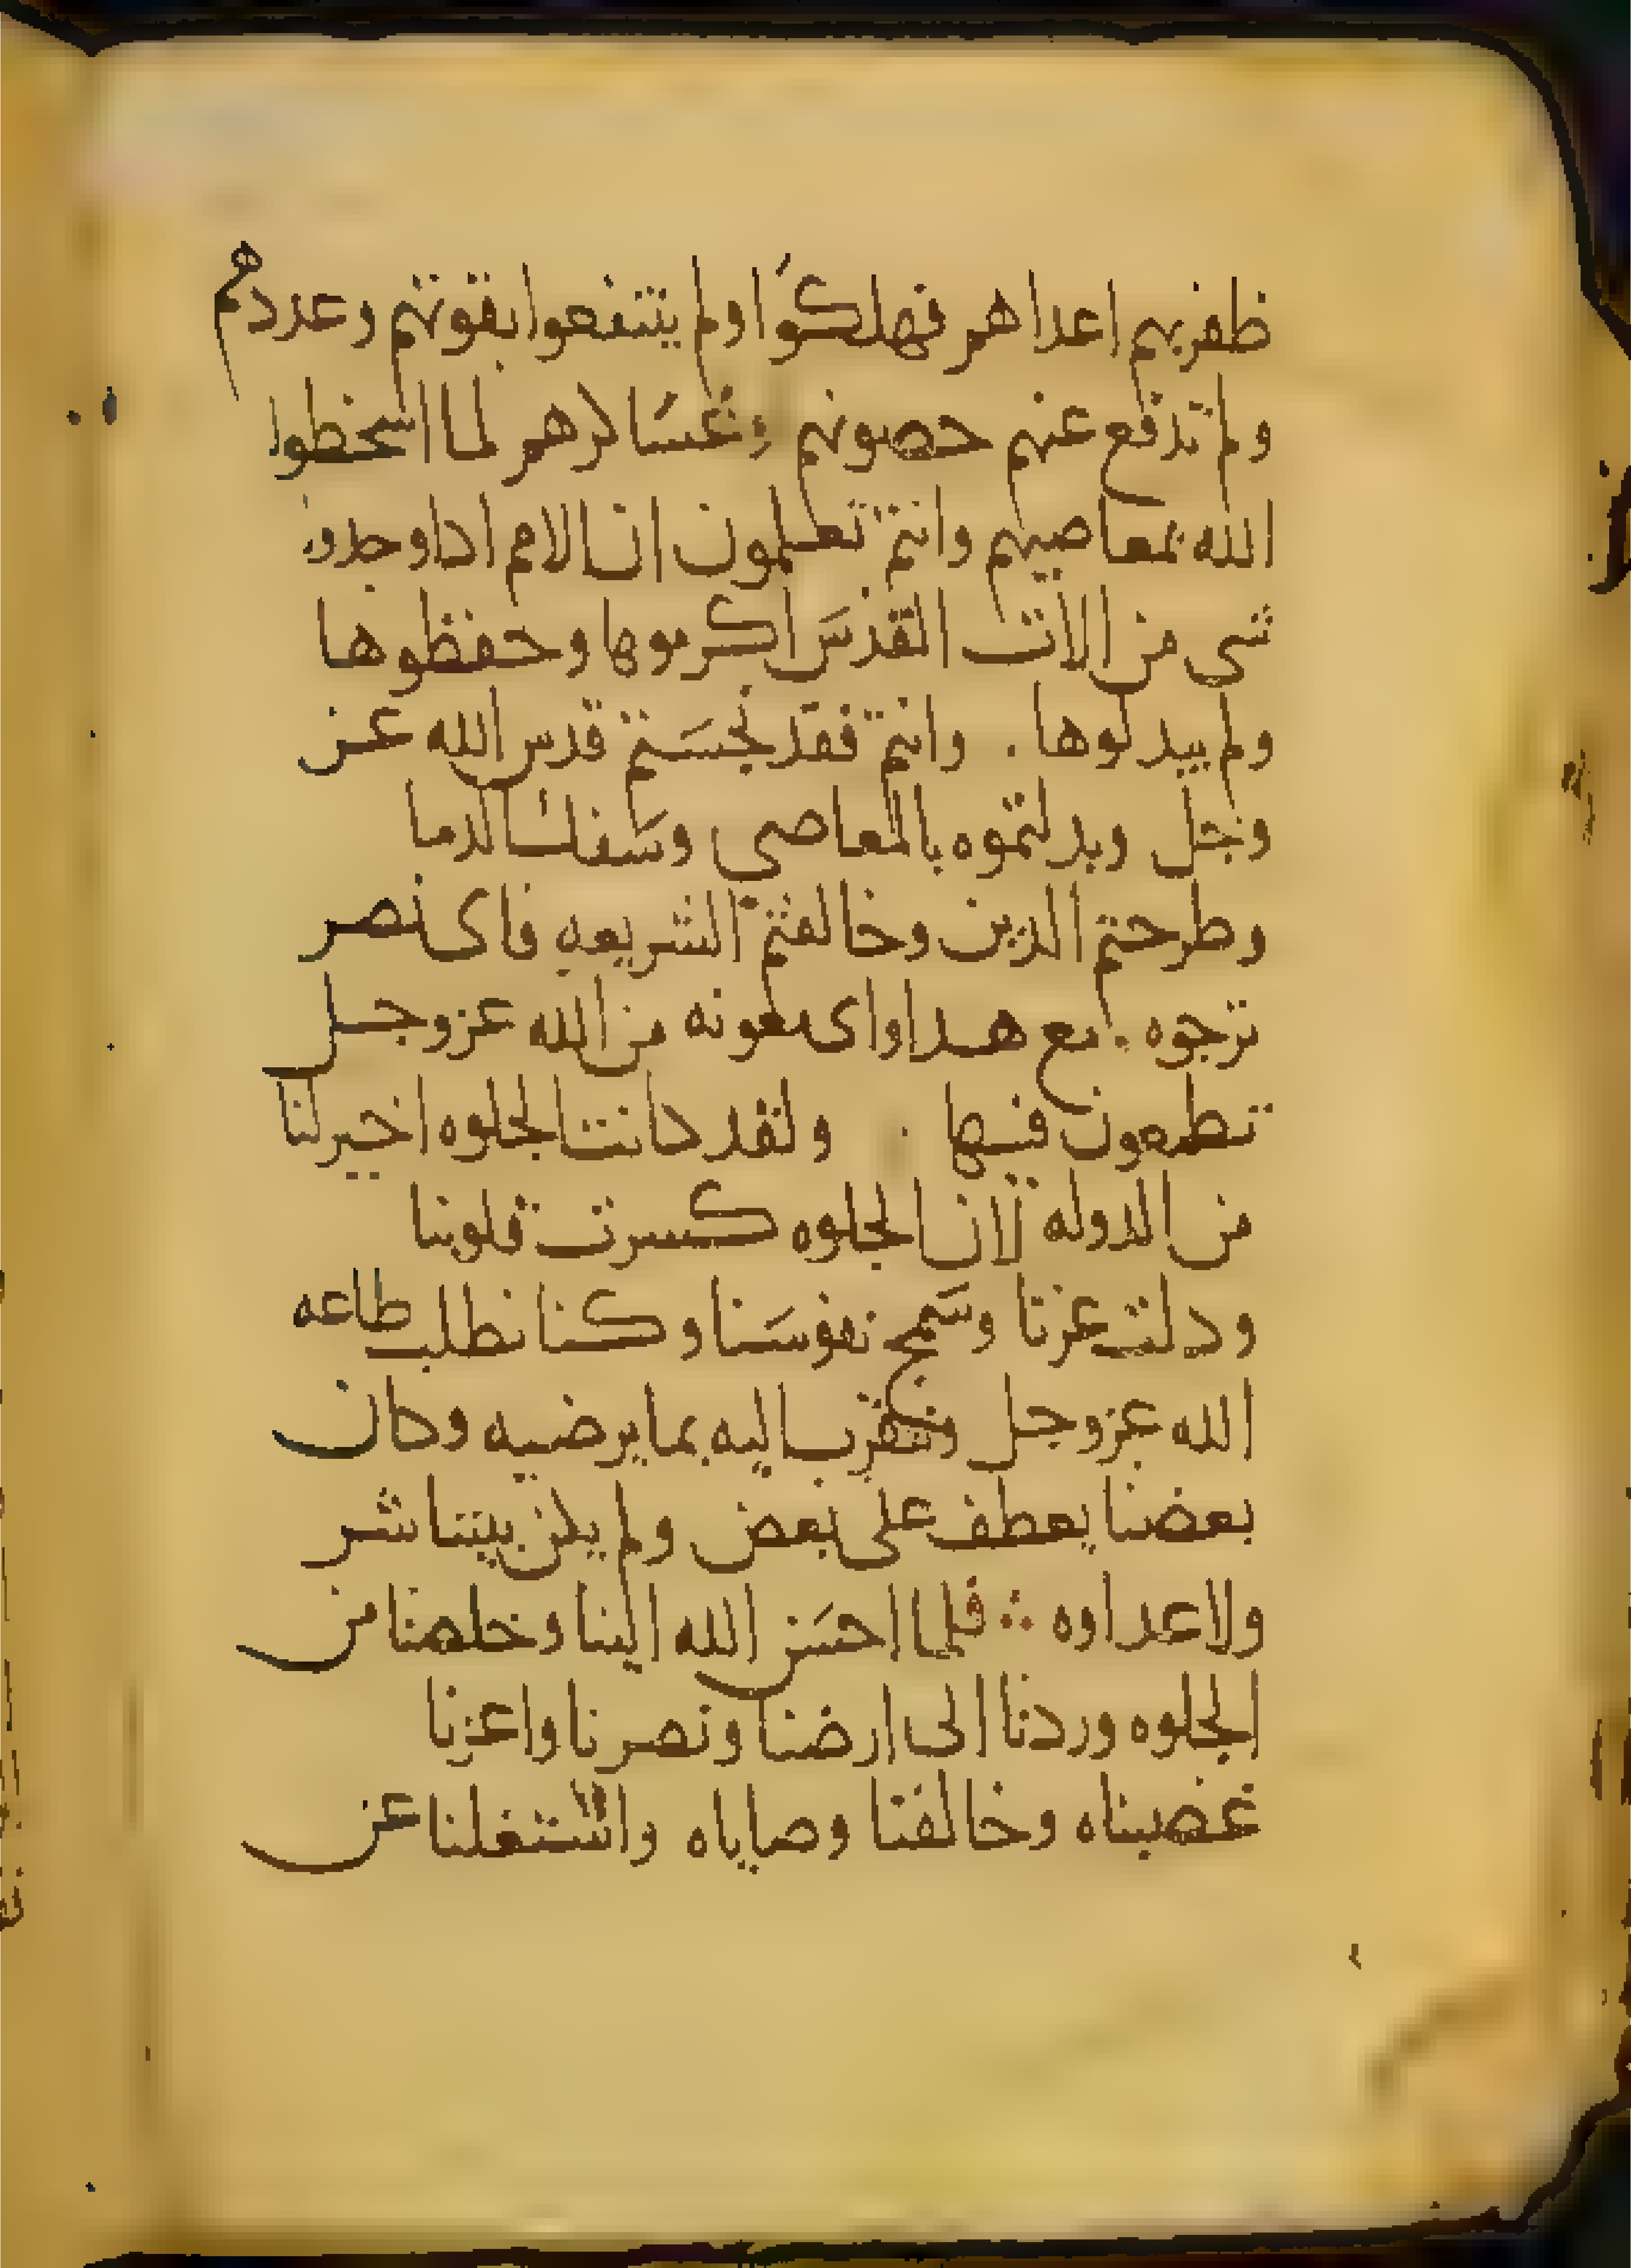 ظفر بهم اعداهم فهلكوا ولم ينتفعوا بقوتهم وعددهم
ولم تدفع عنهم حصونهم وعساكرهم لما اسخطوا
الله بمعاصيهم وانتم تعلمون ان الامم اداوجدو
شى من الات القدس اكرموها وحفظوها
ولم يبدلوها . وانتم فقد نجستم قدس الله عز
وجل وبدلتموه بالمعاصى وسفك الدما
وطرحتم الدين وخالفتم الشريعه فاى نصر
ترجوه . مع هدا واى معونه من الله عز وجل
تطمعون فيها . ولقد كانت الجلوه اخير لنا
من الدوله لان الجلوه كسرت قلوبنا
ودللت عزنا وسمج نفوسنا وكنا نطلب طاعه
الله عز وجل ونتقرب اليه بما يرضيه وكان
بعضنا يعطف على بعض ولم يكن بيننا شر
ولا عداوه ∴ فلما احسن الله الينا وخلصنا من
الجلوه وردنا الى ارضنا ونصرنا واعزنا
عصيناه وخالفنا وصاياه واشتغلنا عن